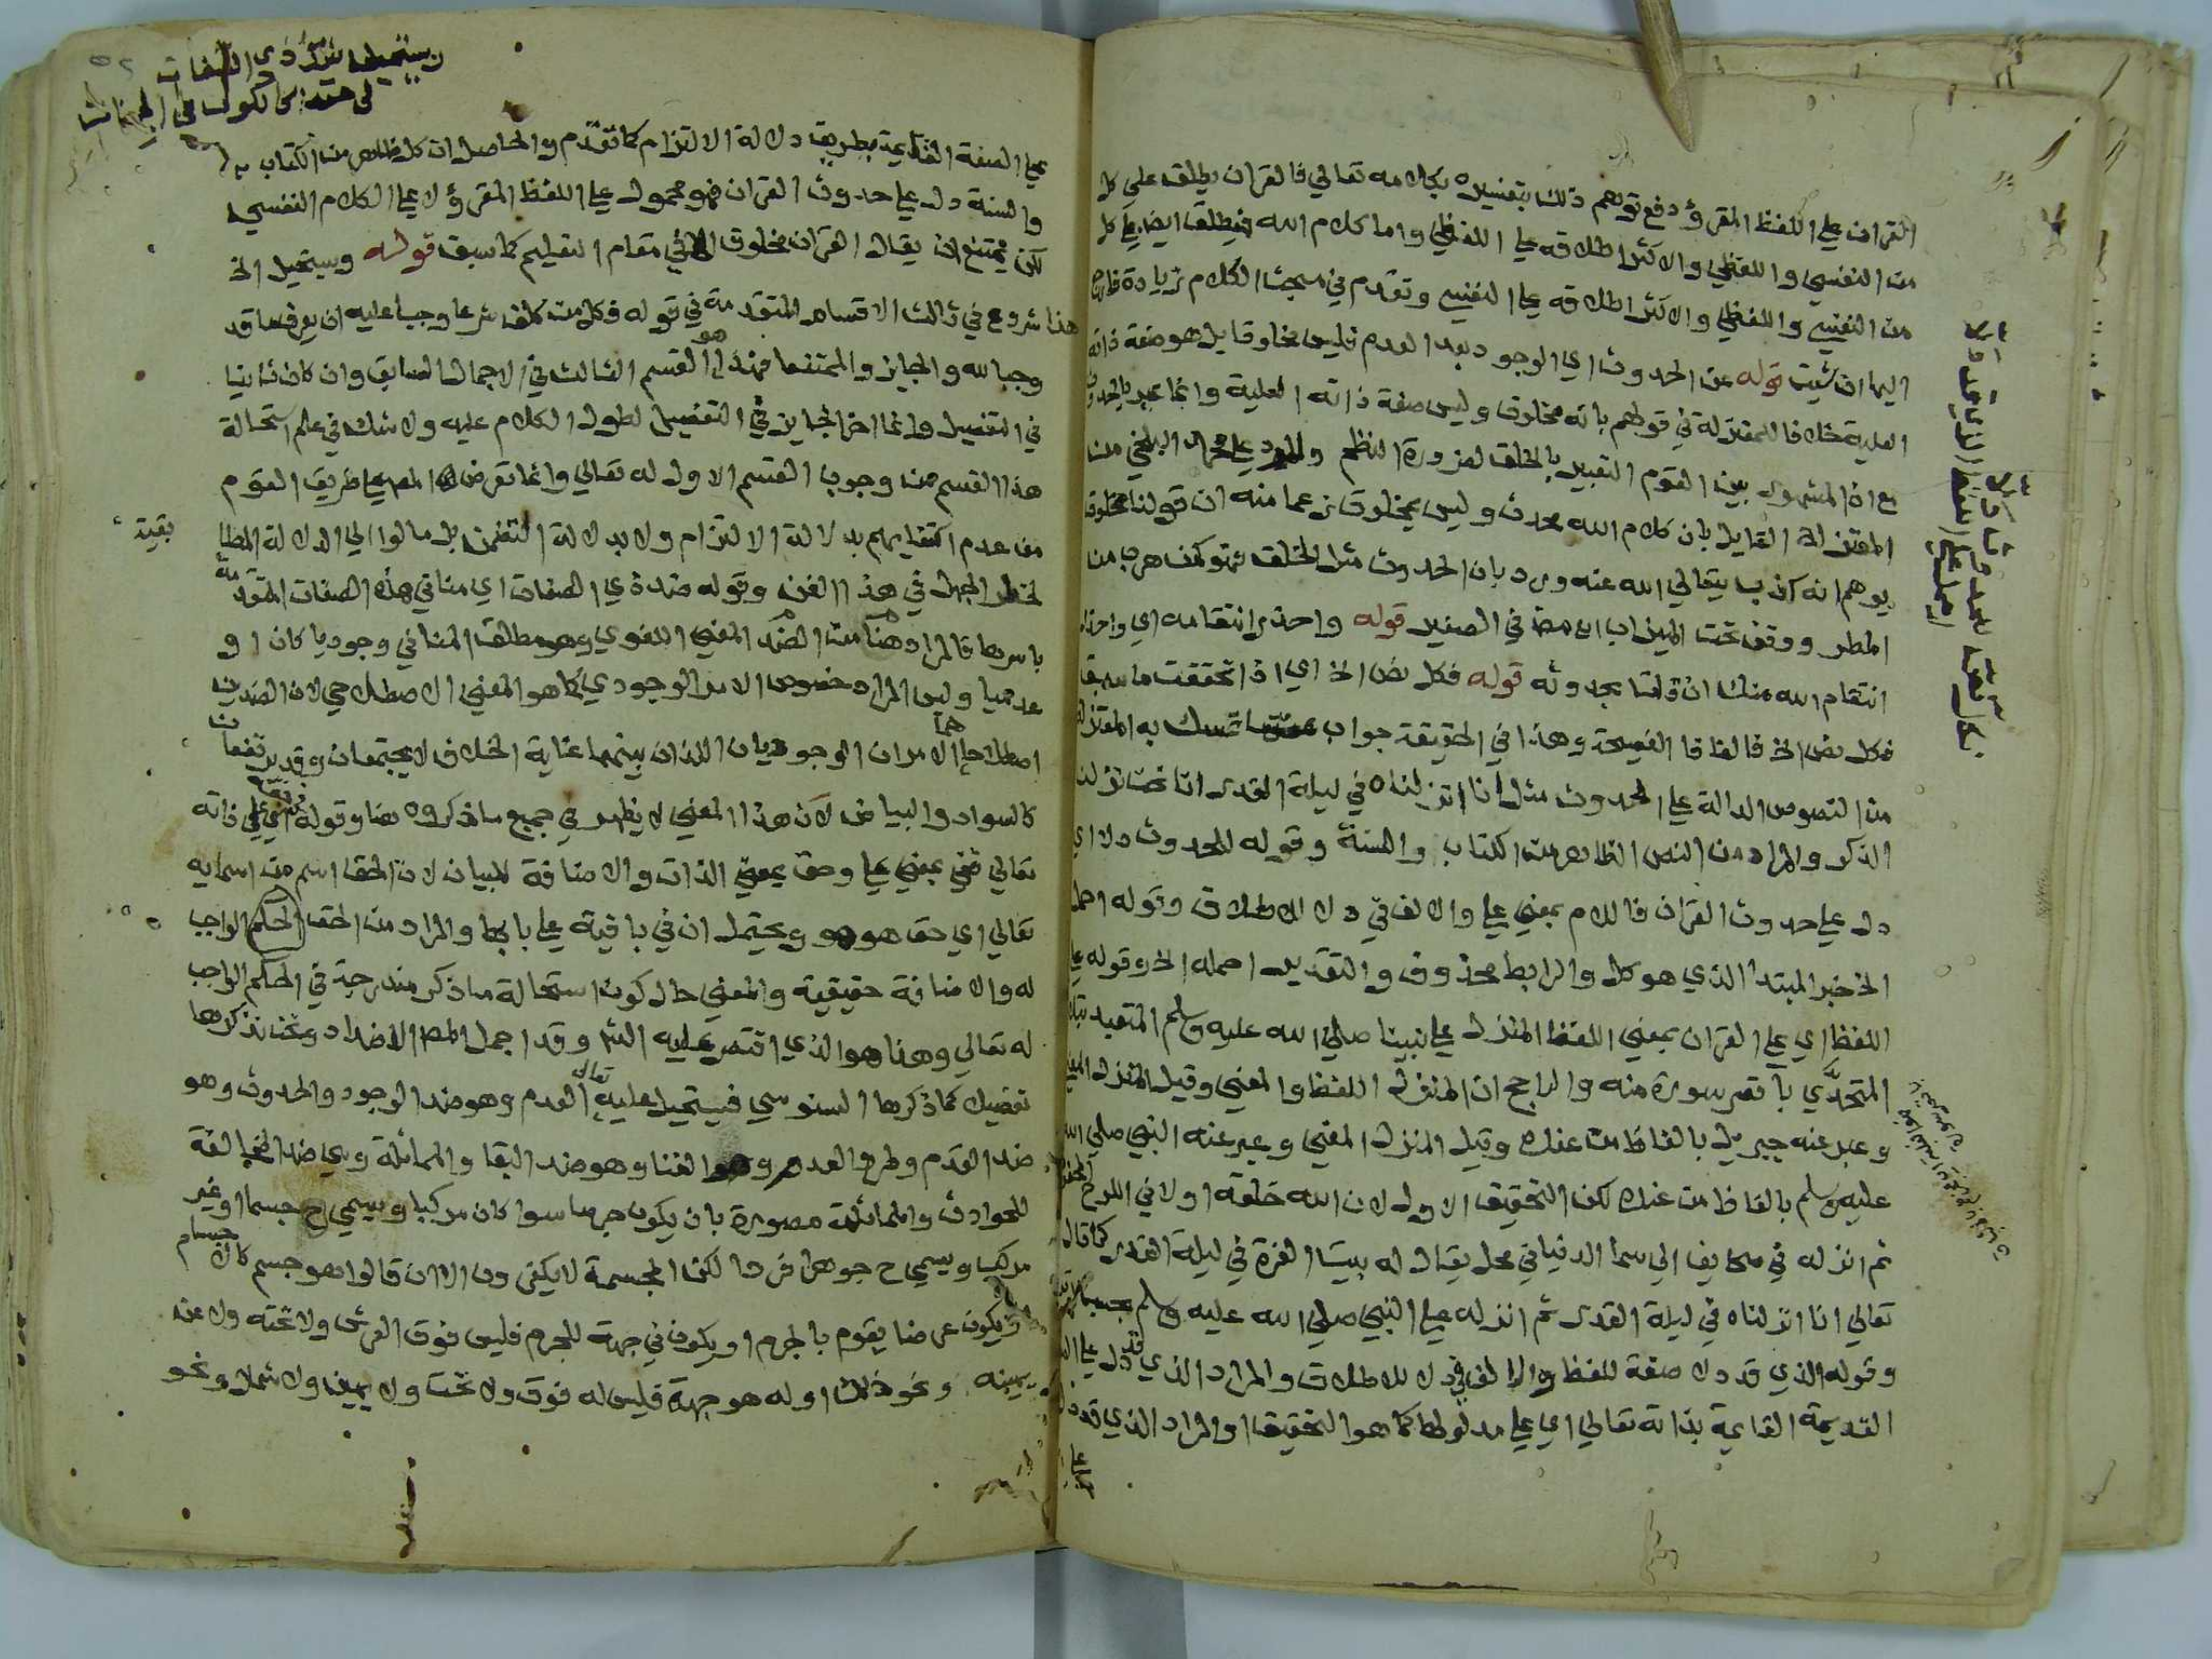 القران علي اللفظ المقرؤ دفع توهم ذلك بتفسيره بكلامه تعالي فالقران يطلق علي كل
من النفسي واللفظي والاكثر اطلاقه علي اللفظي واما كلام الله فيطلق ايضا علي كل
من النفسي واللفظي والاكثر اطلاقه علي النفسي وتقدم في مبحث الكلام زيادة فارجع
اليها ان شئت قوله عن الحدوث اي الوجود بعد العدم فليس مخلوقا بل هو صفة ذاته
العلية خلافا للمعتزلة في قولهم بانه مخلوق وليس صفة ذاته العلية وانما عبر بالحدوث
مع ان المشهور بين القوم التعبير بالخلق لضرورة النظم والرد علي محمد البلخي من
المعتزلة القايل بان كلام الله محدث وليس بمخلوق زعما منه ان قولنا مخلوق
يوهم انه كذب يتعالي الله عنه ورد بان الحدوث مثل الخلق فهو كمن هرب من
المطر ووقف تحت الميزاب اه مص في الصغير قوله واحذر انتقامه اي واحذر
انتقام الله منك ان قلت بحدوثه قوله فكل نص الخ اي اذا تحققت ما سبق
فكل نص الخ فالفا فا الفصيحة وهذا في الحقيقة جواب عما تمسك به المعتزلة
من النصوص الدالة علي الحدوث مثل انا انزلناه في ليلة القدر انا نحن نزلنا
الذكر والمراد من النص الظاهر من الكتاب والسنة وقوله للحدوث دلا اي
دل علي حدوث القران فاللام بمعني علي والالف في دلا للاطلاق وقوله احمل
الخ خبر المبتدا الذي هو كل والرابط محذوف والتقدير احمله الخ وقوله علي
اللفظ اي علي القران بمعني اللفظ المنزل علي نبينا صلي الله عليه وسلم المتعبد بتلاوته
المتحدّي باقصر سورة منه والراجح ان المنزل اللفظ والمعني وقيل المنزل المعني
وعبر عنه جبريل بالفاظ من عنده وقيل المنزل المعني وعبر عنه النبي صلي الله
عليه وسلم بالفاظ من عنده لكن التحقيق الاول لان الله خلقه اولا في اللوح المحفوظ
ثم انزله في صحايف الي سما الدنيا في محل يقال له بيت العزة في ليلة القدر كما قال
تعالي انا انزلناه في ليلة القدر ثم انزله علي النبي صلي الله عليه وسلم بحسب
وقوله الذي قد دلا صفة للفظ والالف في دلا للاطلاق والمراد الذي قد دل علي
القديمة القايمة بذاته تعالي اي علي مدلولها كما هو التحقيق او المراد الذي قد دل
ويستحيل ضد ذي الصفات
في حقه كالكون في الجهات
علي الصفة القديمة بطريق دلالة الالتزام كما تقدم والحاصل ان كل ظاهر من الكتاب
والسنة دل علي حدوث القران فهو محمول علي اللفظ المقرؤ لا علي الكلام النفسي
لكن يمتنع ان يقال القران مخلوق الا في مقام التعليم كما سبق قوله ويستحيل الخ
هذا شروع في ثالث الاقسام المتقدمة في قوله فكل من كلف شرعا وجبا عليه ان يعرف ما قد
وجبا لله والجايز والممتنعا فهذا هو القسم الثالث في الاجمال السابق وان كان ثانيا
في التفصيل وانما اخر الجايز في التفصيل لطول الكلام عليه ولا شك في علم استحالة
هذا القسم من وجوب القسم الاول له تعالي وانما تعرض له المص علي طريق القوم
من عدم اكتفايهم بدلالة الالتزام ولا بدلالة التضمن بل مالوا الي الدلالة المطا
بقية
لخطر الجهل في هذا الفن وقوله ضد ذي الصفات اي منافي هذه الصفات المتقدمة
باسرها فالمراد هنا من الضد المعني اللغوي وهو مطلق المنافي وجوديا كان او
عدميا وليس المراد خصوص الامر الوجودي كما هو المعني الاصطلاحي لان الضدين
اصطلاحا هما الامران الوجوديان اللذان بينهما غاية الخلاف لا يجتمعان وقد يرتفعان
كالسواد والبياض لان هذا المعني لا يظهر في جميع ما ذكروه هنا وقوله في حقه اي علي ذاته
تعالي ففي بمعني علي وحق بمعني الذات والاضافة للبيان لان الحق اسم من اسمايه
تعالي اي حق هو هو ويحتمل ان في باقية علي بابها والمراد من الحق الحكم الواجب
له والاضافة حقيقية والمعني حال كون استحالة ما ذكر مندرجة في الحكم الواجب
له تعالي وهذا هو الذي اقتصر عليه الش وقد اجمل المص الاضداد ونحن نذكرها
تفصيلا كما ذكرها السنوسي فيستحيل عليه تعالي العدم وهو ضد الوجود والحدوث وهو
ضد القدم وطرو العدم وهو الفنا وهو ضد البقا والمماثلة وهي ضد المخالفة
للحوادث والمماثلة مصورة بان يكون جرما سوا كان مركبا ويسمي ح جسما او غير
مركب ويسمي ح جوهرا فردا لكن المجسمة لا يكفرون الا ان قالوا هو جسم كالاجسام
او يكون عرضا يقوم بالجرم او يكون في جهة للجرم فليس فوق العرش ولا تحته ولا عن
يمينه ونحو ذلك او له هو جهة فليس له فوق ولا تحت ولا يمين ولا شمال ونحو